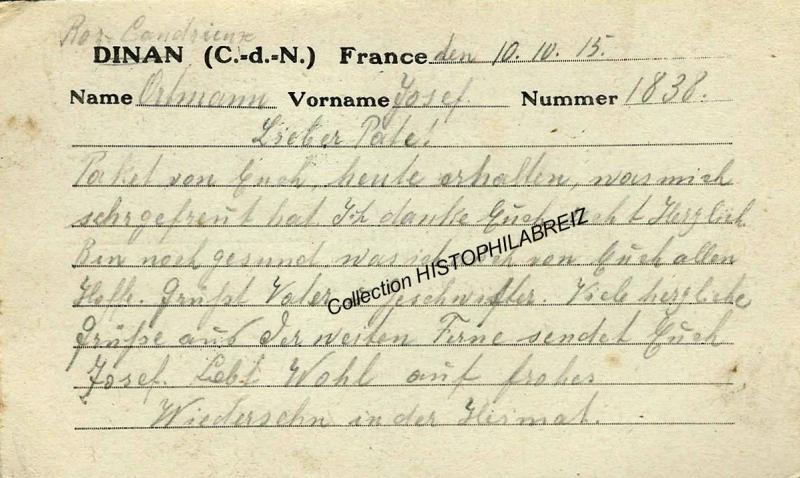 Roz-Landrieux
DINAN (C.-d.-N.) France den 10. 10. 15.
Name Ortmann Vorname Josef. Nummer 1838.
Lieber Pate!
Paket von Euch, heute erhalten, was mich
sehr gefreut hat. Ich danke Euch recht Herzlich.
Bin noch gesund was ich auch von Euch allen
Hoffe. Grüßt Vater u. Geschwister. Viele herzliche
Grüße aus der weiten Ferne sendet Euch
Josef. Lebt Wohl auf frohes
Wiedersehn in der Heimat.
Collection HISTOPHILABREIZ